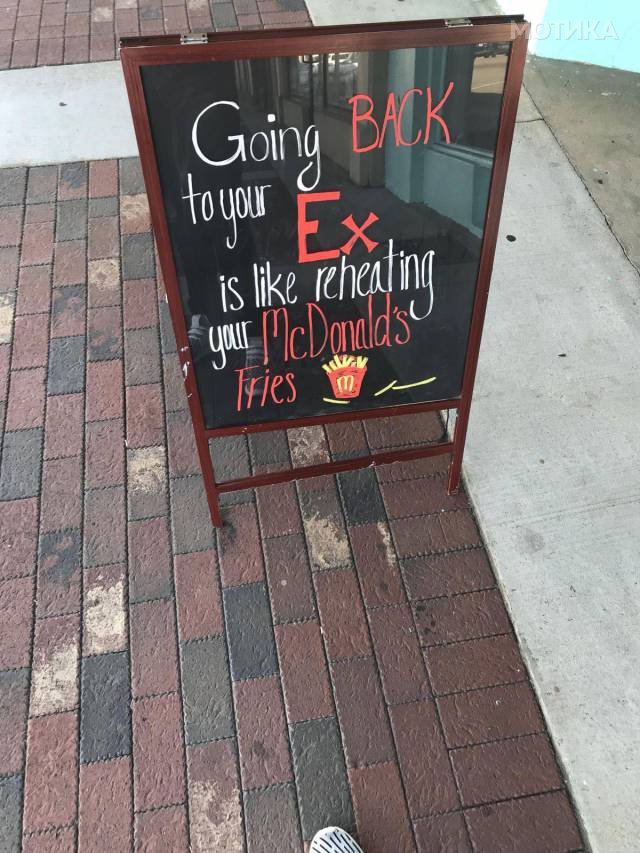 МОТИКА
Going BACK
to your Ex
is like reheating
your McDonald's
Fries
m